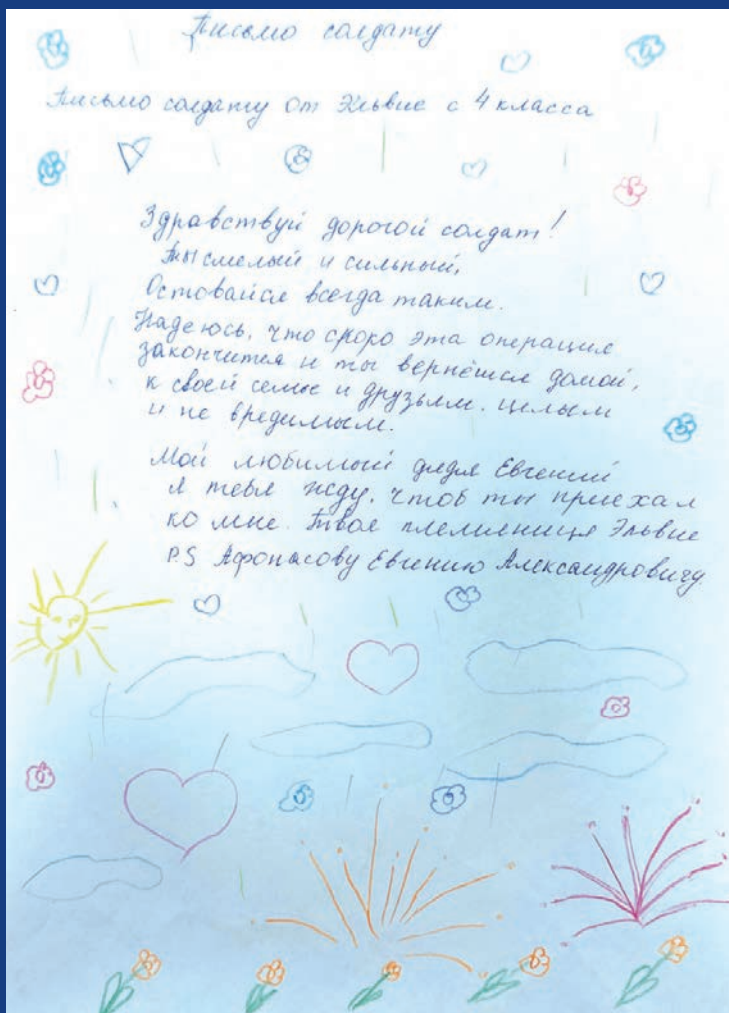 Письмо солдату
Письмо солдату от Эльвие с 4 класса
Здравствуй дорогой солдат!
Ты смелый и сильный,
Оставайся всегда таким.
Надеюсь, что скоро эта операция
закончится и ты вернёшся домой,
к своей семье и друзьям. целым
и не вредимым.
Мой любимый дядя Евгений
я тебя жду, чтоб ты приехал
ко мне. Твоя племянница Эльвие
P.S Афонасову Евгению Александровичу.